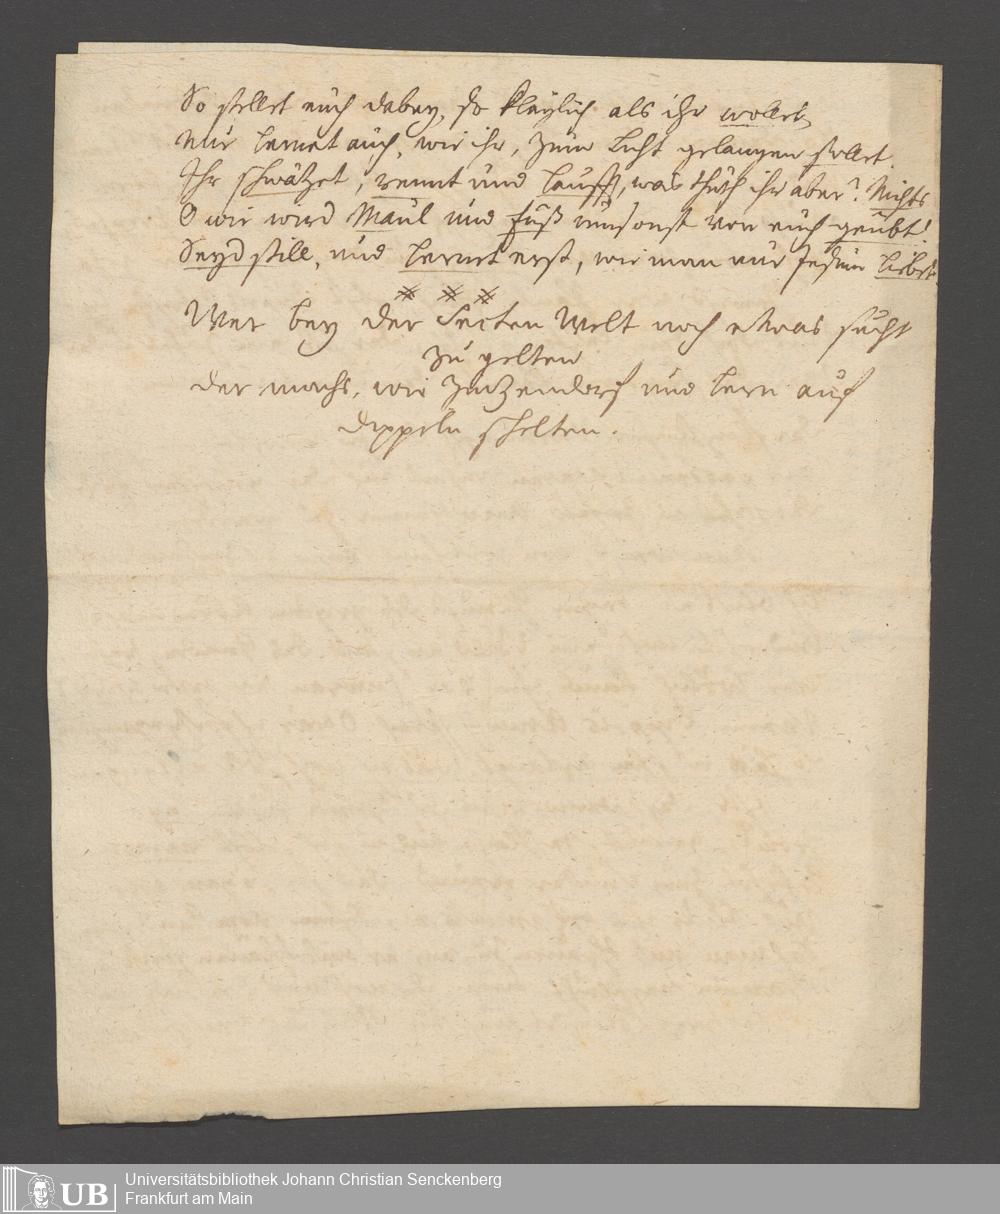 So stellet euch dabey, so kläglich als ihr wollet,
Nur lernet auch, wie ihr, zum Licht gelangen sollet.
Ihr schwätzet, rennt und laufft, was thut ihr aber? Nichts
O wie wird Maul und Fuß umsonst von euch geübt!
Seyd still, und lernet erst, wie man nur Jesum liebet.
Wer bey der Secten Welt noch etwas sucht
zu gelten
der machs, wie Zinzendorf und lern auf
Dippeln schelten.
UB
Universitätsbibliothek Johann Christian Senckenberg
Frankfurt am Main